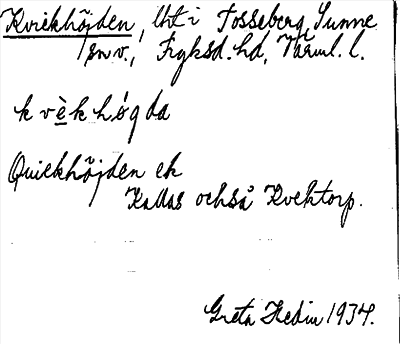 Kvickhöjden, lht i Tosseberg, Sunne
snv., Fryksd. hd, Värml. l.
kvèkhógda
Quickhöjden ek
Kallas också Kvektorp.
Greta Hedin 1934.